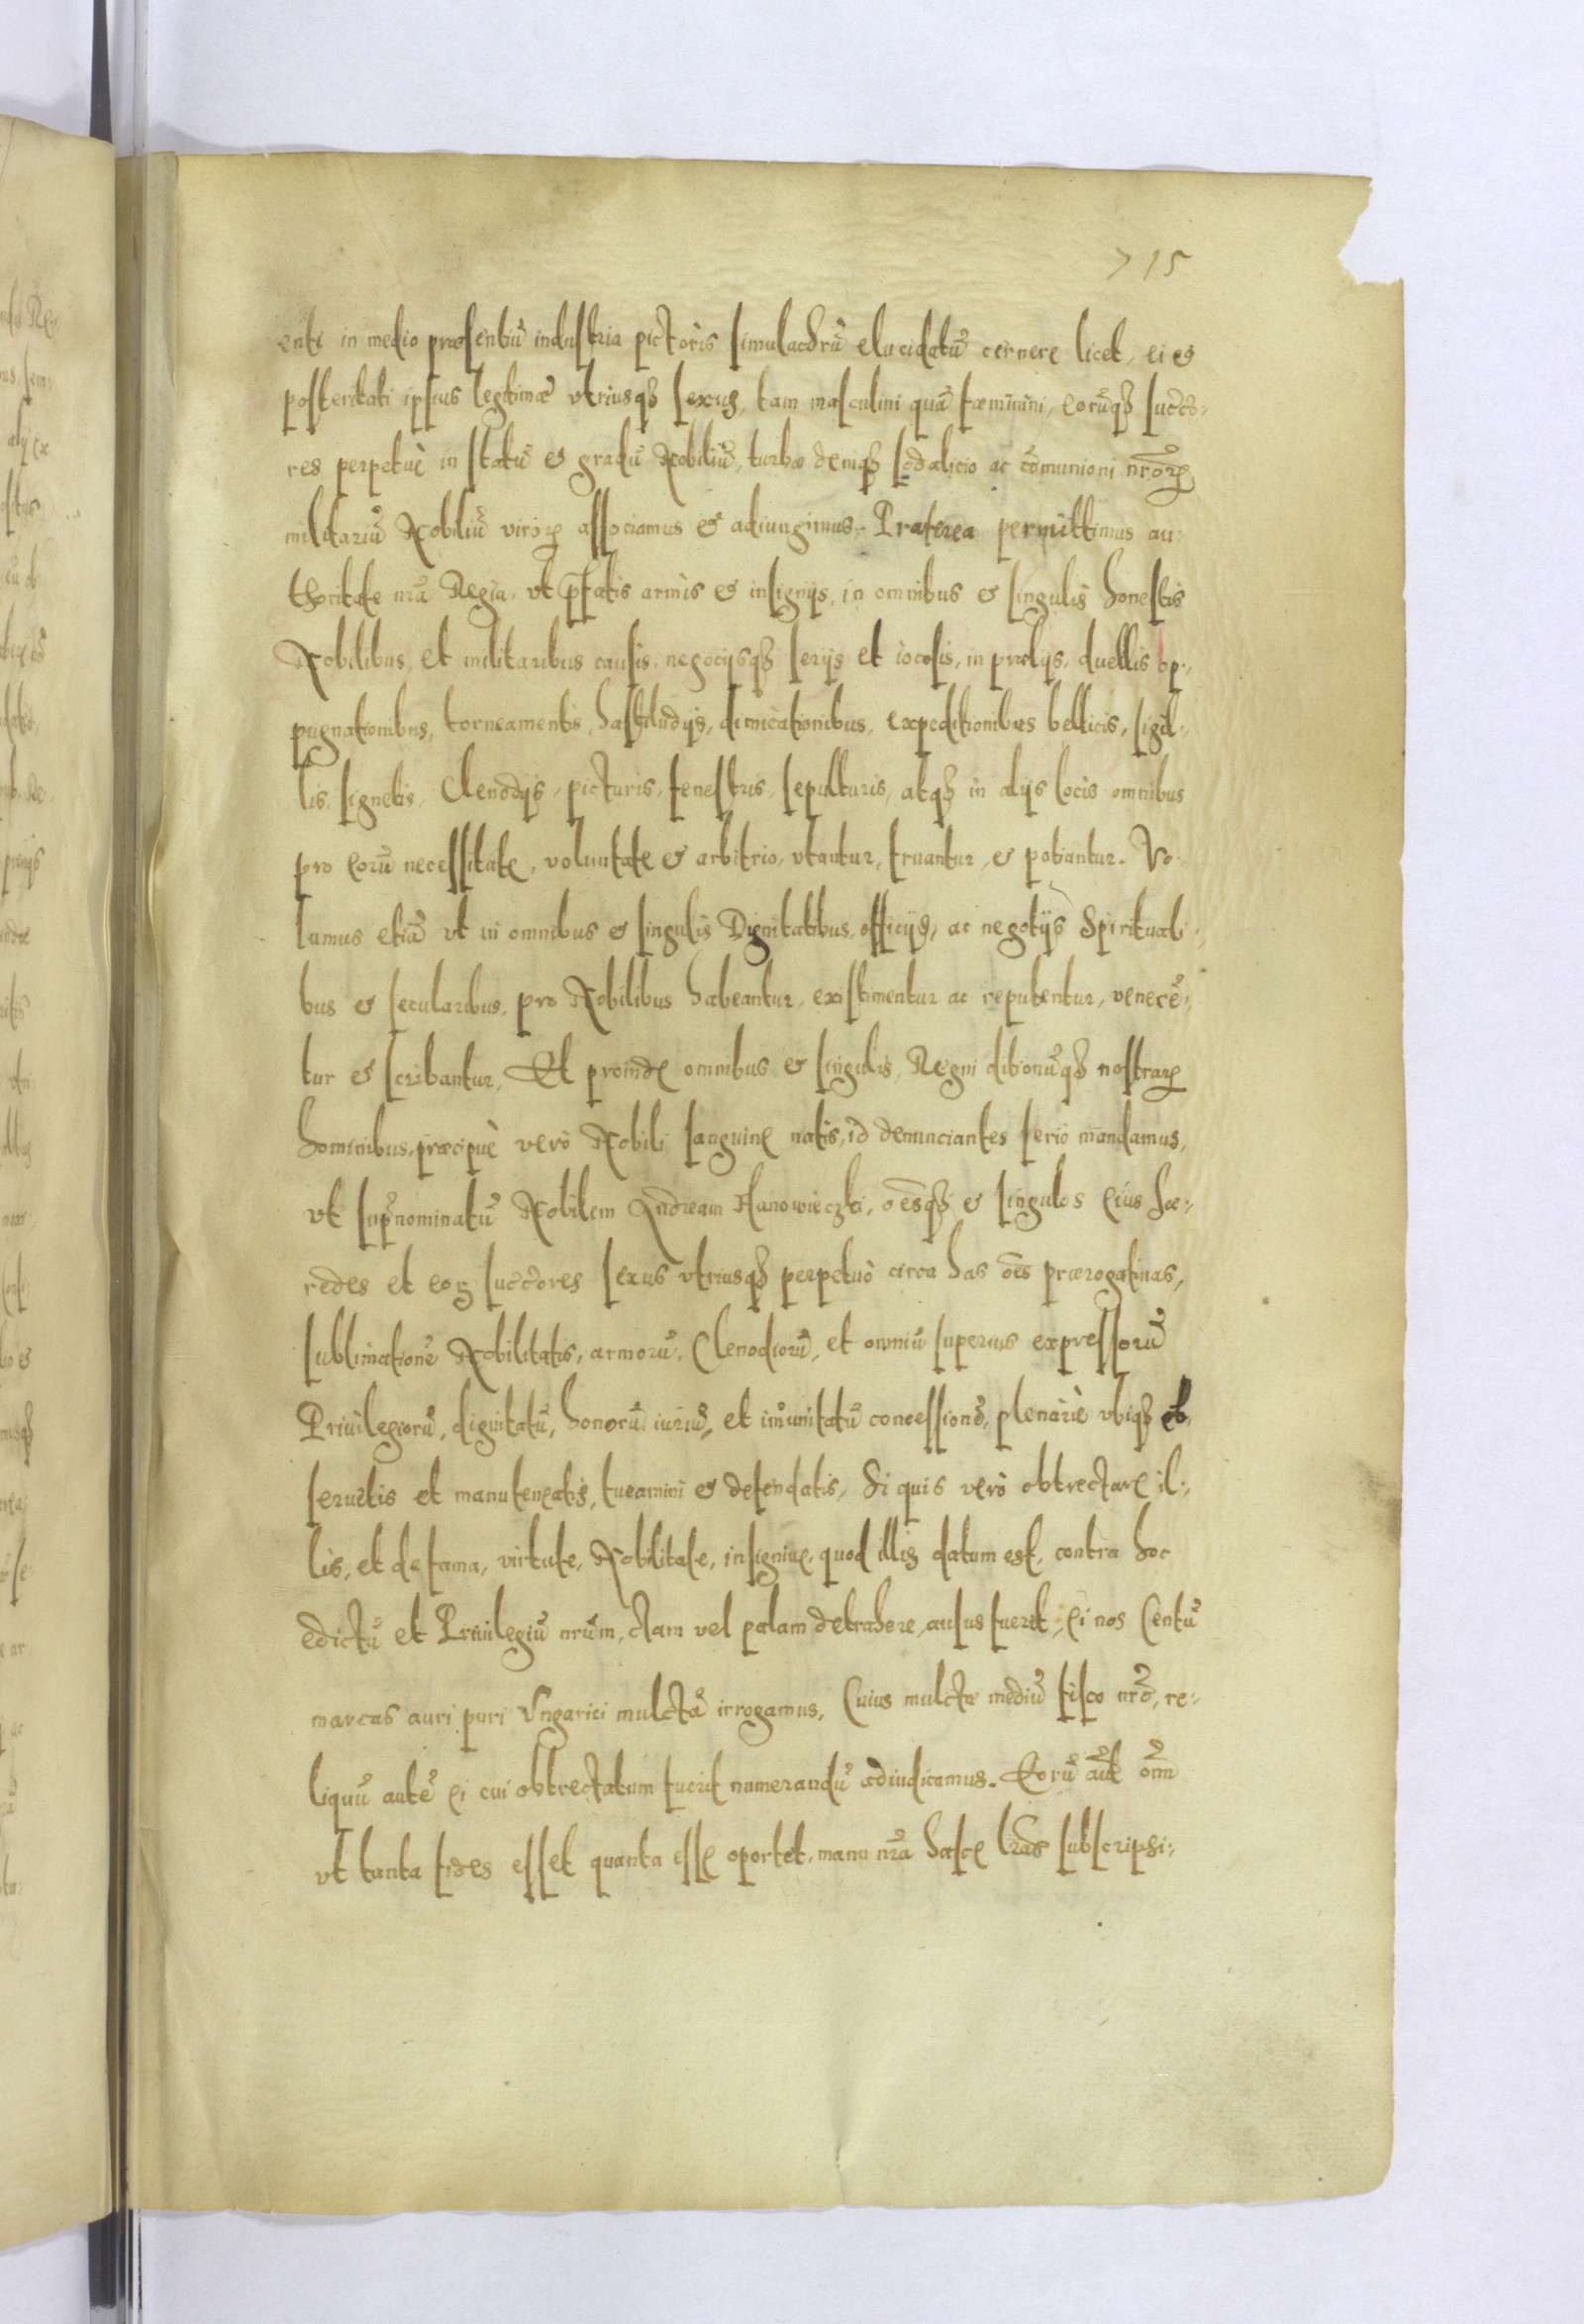 715
enti in medio præsentiũ industria pictoris simulachrũ elucidatũ cernere licet, ei et
posteritati ipsius legitimæ vtriusqȝ sexus, tam masculini quã fæminini, eorũqȝ succo-
res perpetuè in statũ et gradũ Nobiliũ, turbæ deniqȝ sodalicio ac cõmunioni nrõrꝝ
militariũ Nobiliũ virorꝝ associamus et adiungimus. Præterea permittimus au-
thoritate nrã Regia, vt p̃fatis armis et insignijs, in omnibus et singulis honestis
Nobilibus et militaribus causis, negocijsqȝ serijs et iocosis, in prælijs, duellis op-
pugnationibus, torneamentis, hastiludijs, dimicationibus, expeditionibus bellicis, sigil-
lis, signetis, Clenodijs, picturis, fenestris, sepulturis, atqȝ in alijs locis omnibus
pro eorũ necessitate, voluntate et arbitrio, vtantur, fruantur, et potiantur. Vo-
lumus etiã vt in omnibus et singulis Dignitatibus, officijs, ac negotijs Spirituali-
bus et secularibus, pro Nobilibus habeantur, existimentur ac reputentur, venerẽ-
tur et scribantur, Et proinde omnibus et singulis Regni ditionũqȝ nostrarꝝ
hominibus, præcipuè verò Nobili sanguine natis, id denunciantes seriò mandamus,
vt sup̃nominatũ Nobilem Andream Hanowieczki, oẽsqȝ et singulos eius hæ-
redes et eorꝝ succores sexus vtriusqȝ perpetuò circa has oẽs prærogatiuas,
sublimationẽ Nobilitatis, armorũ, Clenodiorũ, et omniũ superius expressorũ
Priuilegiorũ, dignitatũ, honorũ iuriũ, et imũnitatũ concessionẽ, plenariè vbiqȝ ob-
seruetis et manuteneatis, tueamini et defendatis, Si quis verò obtrectare il-
lis, et de fama, virtute, Nobilitate, insigniue, quod illis datum est, contra hoc
edictũ et Priuilegiũ nrũm, clam vel palam detrahere, ausus fuerit, ei nos Centũ
marcas auri puri Vngarici mulctã irrogamus, Cuius mulctæ mediũ fisco nrõ, re-
liquũ autẽ ei cui obtrectatum fuerit numerandũ adiudicamus. Eorũ aũt oĩm
vt tanta fides esset quanta esse oportet, manu nrã hasce lrãs subscripsi-